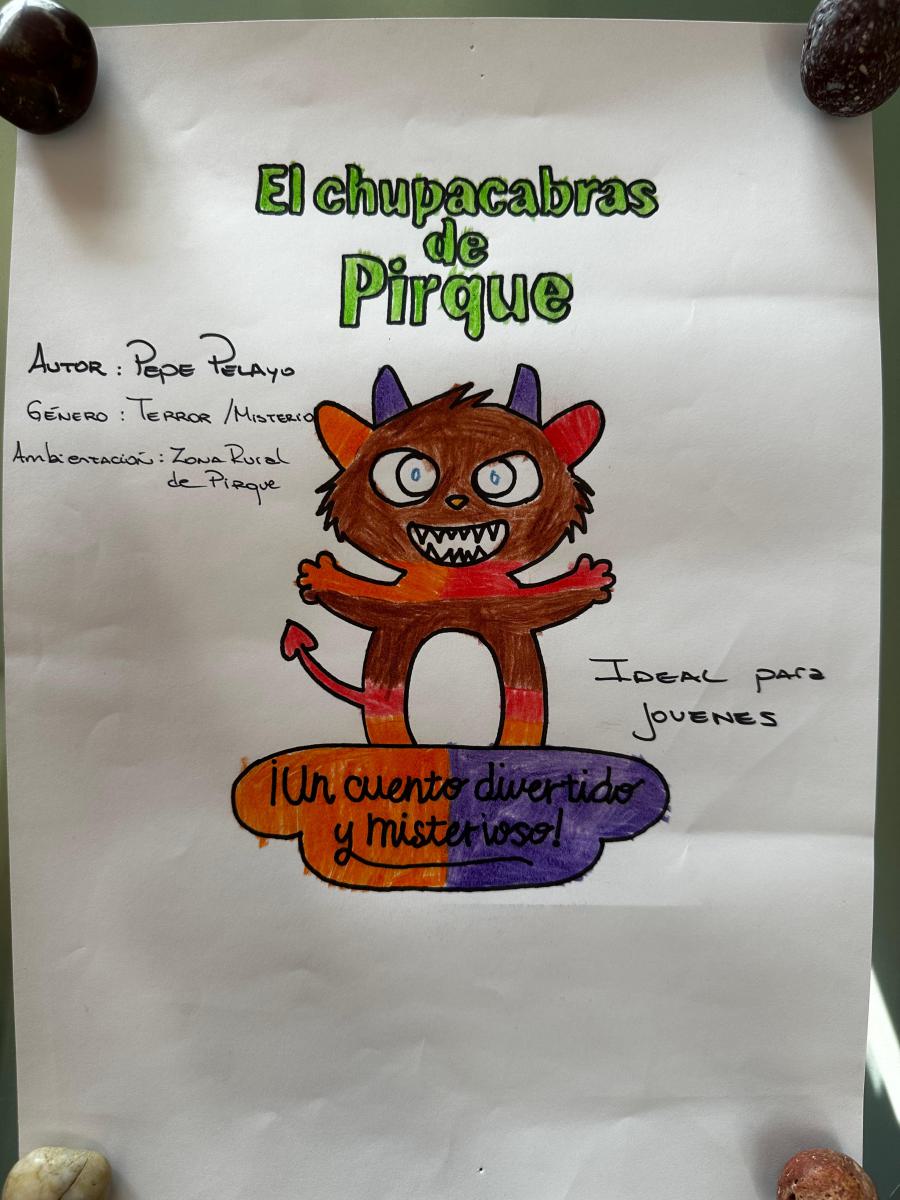 El chupacabras
de
Pirque
AUTOR : PEPE PELAYO
GÉNERO : TERROR / MISTERIO
Ambientación : ZONA RURAL
de PIRQUE
IDEAL para
JOVENES
¡Un cuento divertido
y misterioso!